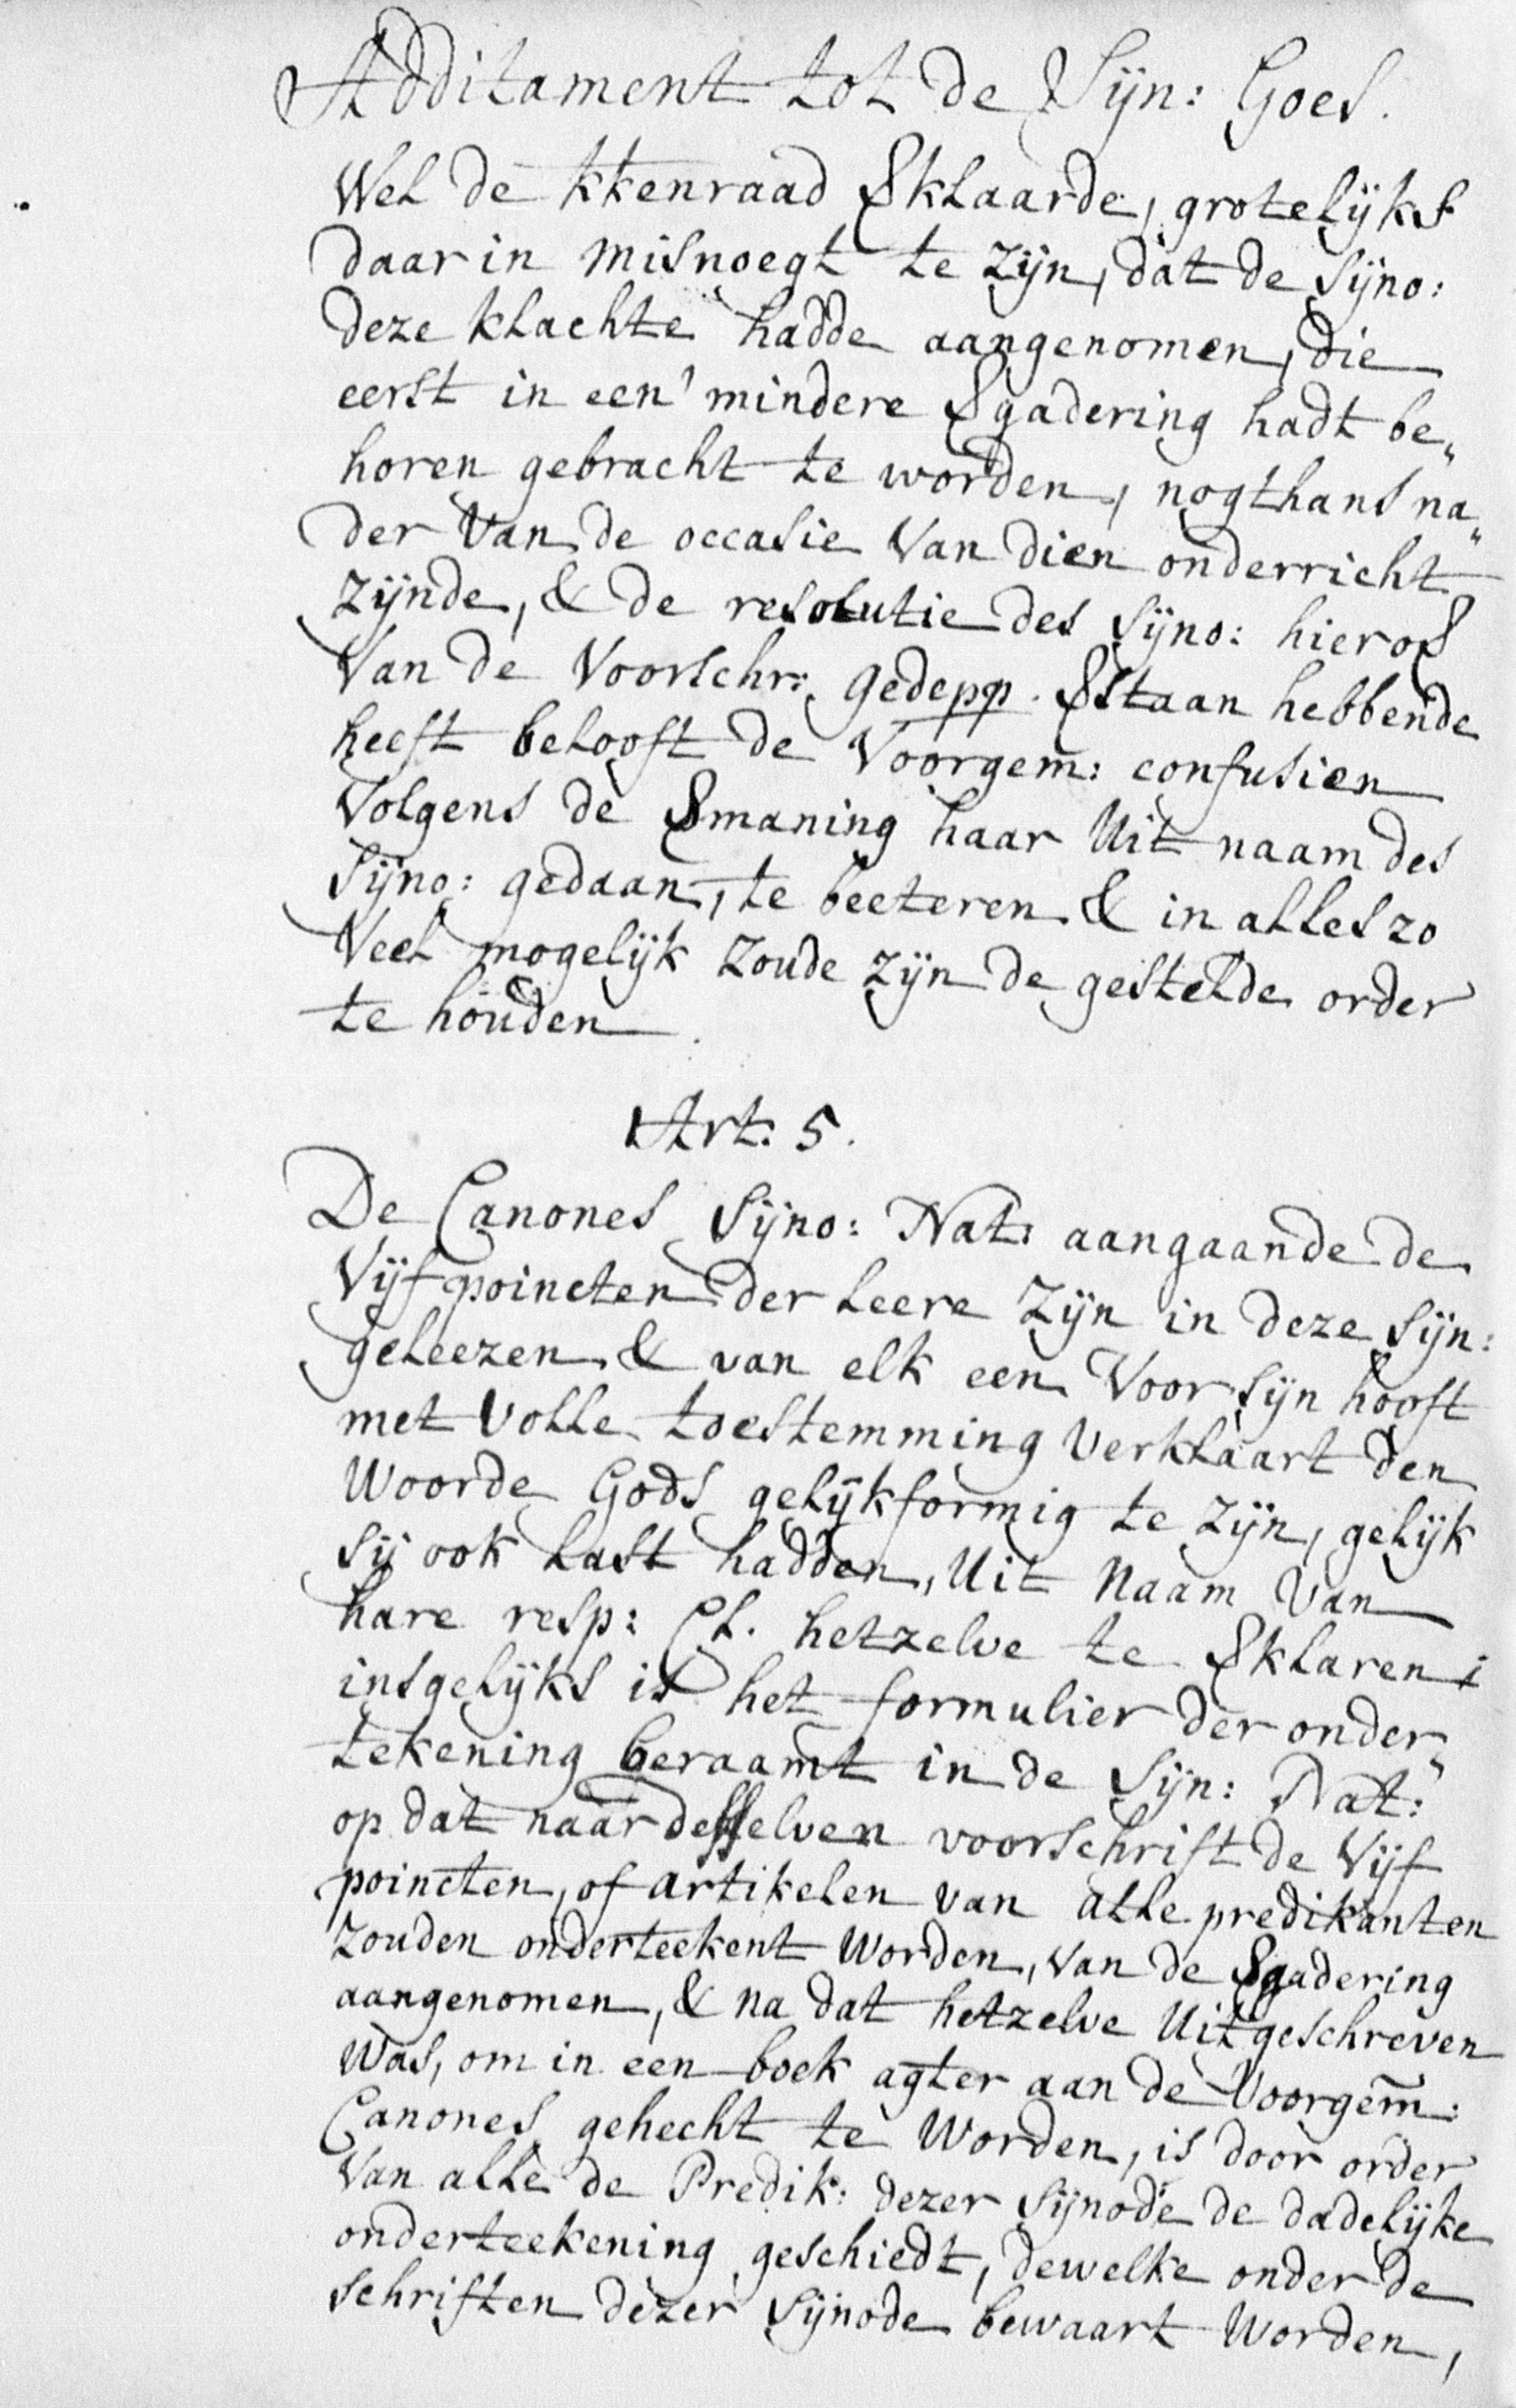 Additament tot de Sijn: Goes.
Wel de kkenraad Vklaarde, grotelijks
daar in misnoegt te zijn, dat de Sijno:
deze klachte hadde aangenomen, die
eerst in een' mindere Vgadering hadt be„
horen gebracht te worden, nogthans na„
der van de occasie van dien onderricht
zijnde, & de resolutie des Sijno: hierov
van de voorschr: gedepp. Vstaan hebbende
heeft belooft de voorgem: confusien
volgens de Vmaning haar uit naam des
Sijno: gedaan, te beeteren & in alles zo
veel mogelijk zoude zijn de gestelde order
te houden.
Art: 5.
De Canones Sijno: Nat: aangaande de
vijf poincten der leere zijn in deze Sijn:
geleezen & van elk een voor sijn hooft
met volle toestemming verklaart den
woorde Gods gelijkformig te zijn, gelijk
sij ook last hadden, uit naam van
hare resp: Cl. hetzelve te Vklaren;
insgelijks is het formulier der onder„
tekening beraamt in de Sijn: Nat:
op dat naar desselven voorschrift de vijf
poincten, of artikelen van alle predikanten
zouden onderteekent worden, van de Vgadering
aangenomen, & na dat hetzelve uitgeschreven
was, om in een boek agter aan de voorgem̄:
Canones gehecht te worden, is door order
van alle de Predik: dezer Sijnode de dadelijke
onderteekening geschiedt, dewelke onder de
schriften dezer Sijnode bewaart worden,